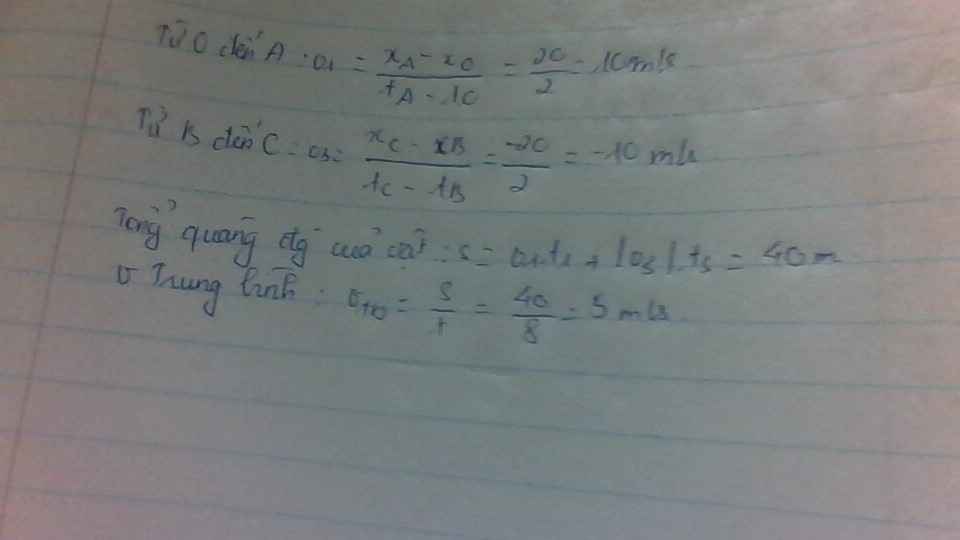 Từ O đến A : v₁ = (x_A - x_O)/(t_A - t_O) = 20/2 = 10 m/s
Từ B đến C : v₃ = (x_C - x_B)/(t_C - t_B) = -20/2 = -10 m/s
Tổng quãng đg của vật : s = v₁.t₁ + |v₃|.t₃ = 40 m
v Trung bình : v_tb = s/t = 40/8 = 5 m/s